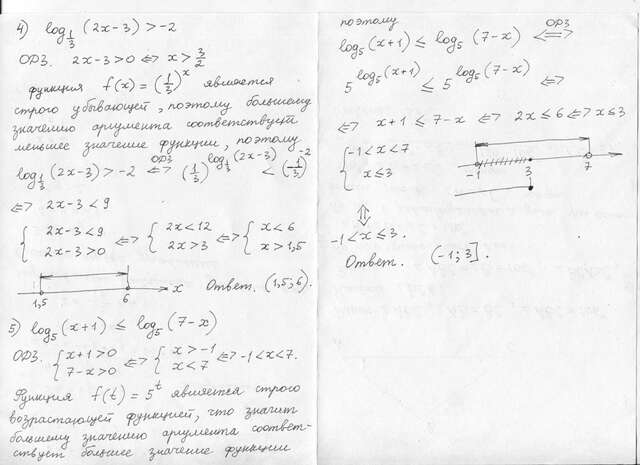 4) log_{1/3} (2x-3) > -2
ОДЗ. 2x-3>0 ⟺ x > 3/2
функция f(x) = (1/3)^x является
строго убывающей, поэтому большему
значению аргумента соответствует
меньшее значение функции, поэтому
log_{1/3} (2x-3) > -2 ⟺^{ОДЗ} (1/3)^{log_{1/3} (2x-3)} < (1/3)^{-2}
⟺ 2x-3 < 9
{ 2x-3<9 ⟺ { 2x<12 ⟺ { x<6
2x-3>0 2x>3 x>1,5
1,5 6 x Ответ. (1,5; 6).
5) log_5 (x+1) ≤ log_5 (7-x)
ОДЗ. { x+1>0 ⟺ { x>-1 ⟺ -1<x<7.
7-x>0 x<7
Функция f(t) = 5^t является строго
возрастающей функцией, что значит
большему значению аргумента соответ-
ствует большее значение функции
поэтому
log_5 (x+1) ≤ log_5 (7-x) ⟺^{ОДЗ}
5^{log_5 (x+1)} ≤ 5^{log_5 (7-x)} ⟺
⟺ x+1 ≤ 7-x ⟺ 2x ≤ 6 ⟺ x ≤ 3
{ -1<x<7
x≤3
-1 3 7
⇕
-1<x≤3.
Ответ. (-1; 3].